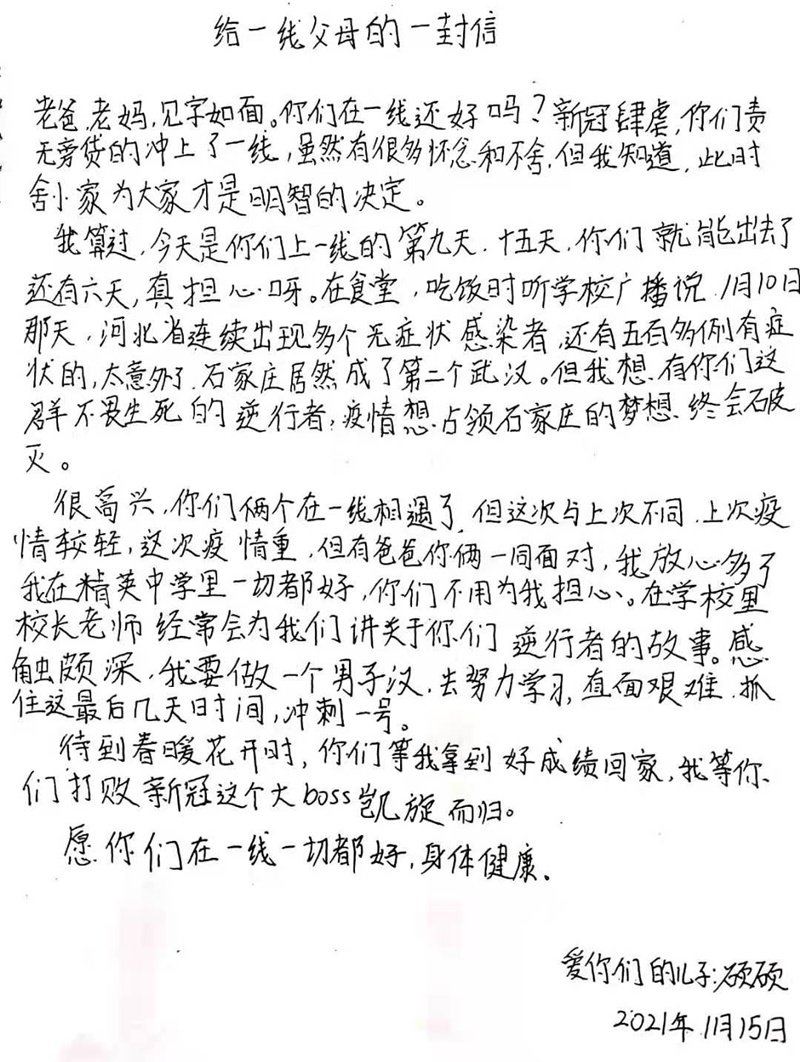 给一线父母的一封信
老爸,老妈,见字如面。你们在一线还好吗?新冠肆虐,你们责
无旁贷的冲上了一线,虽然有很多怀念和不舍,但我知道,此时
舍小家为大家才是明智的决定。
我算过,今天是你们上一线的第九天.十五天,你们就能出去了
还有六天,真担心呀。在食堂,吃饭时听学校广播说.1月10日
那天,河北省连续出现多个无症状感染者,还有五百多例有症
状的,太意外了.石家庄居然成了第二个武汉。但我想.有你们这
群不畏生死的逆行者,疫情想占领石家庄的梦想.终会破
灭。
很高兴,你们俩个在一线相遇了.但这次与上次不同.上次疫
情较轻,这次疫情重,但有爸爸你俩一同面对,我放心多了
我在精英中学里一切都好,你们不用为我担心、。在学校里
校长老师经常会为我们讲关于你们逆行者的故事。感
触颇深,我要做一个男子汉.去努力学习,直面艰难.抓
住这最后几天时间,冲刺一号。
待到春暖花开时,你们等我拿到好成绩回家,我等你
们打败新冠这个大boss凯旋而归。
愿你们在一线一切都好,身体健康.
爱你们的儿子:硕硕
2021年11月15日